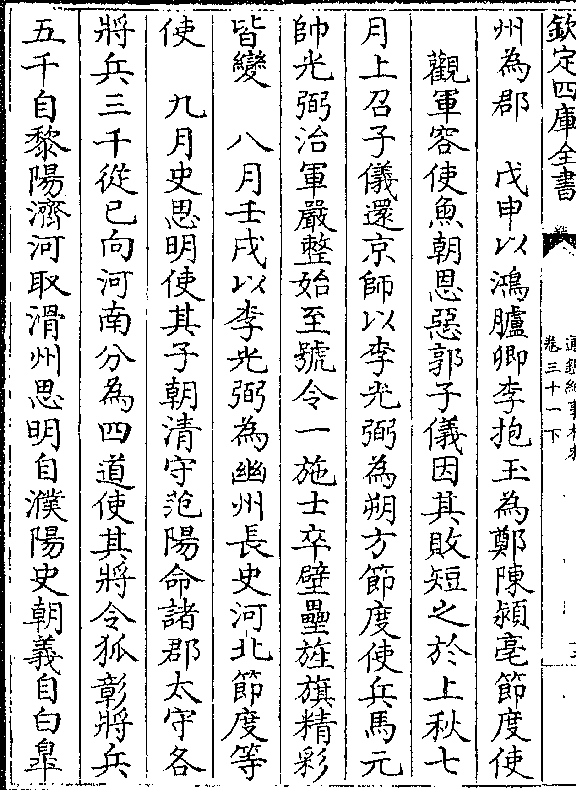 欽定四庫全書
卷三十一下
州為郡　戊申以鴻臚卿李抱玉為鄭陳潁亳節度使
觀軍容使魚朝恩惡郭子儀因其敗短之於上秋七
月上召子儀還京師以李光弼為朔方節度使兵馬元
帥光弼治軍嚴整始至號令一施士卒壁壘旌旗精彩
皆變　八月壬戌以李光弼為幽州長史河北節度等
使　九月史思明使其子朝清守范陽命諸郡太守各
將兵三千從己向河南分為四道使其將令狐彰將兵
五千自黎陽濟河取滑州思明自濮陽史朝義自白皐